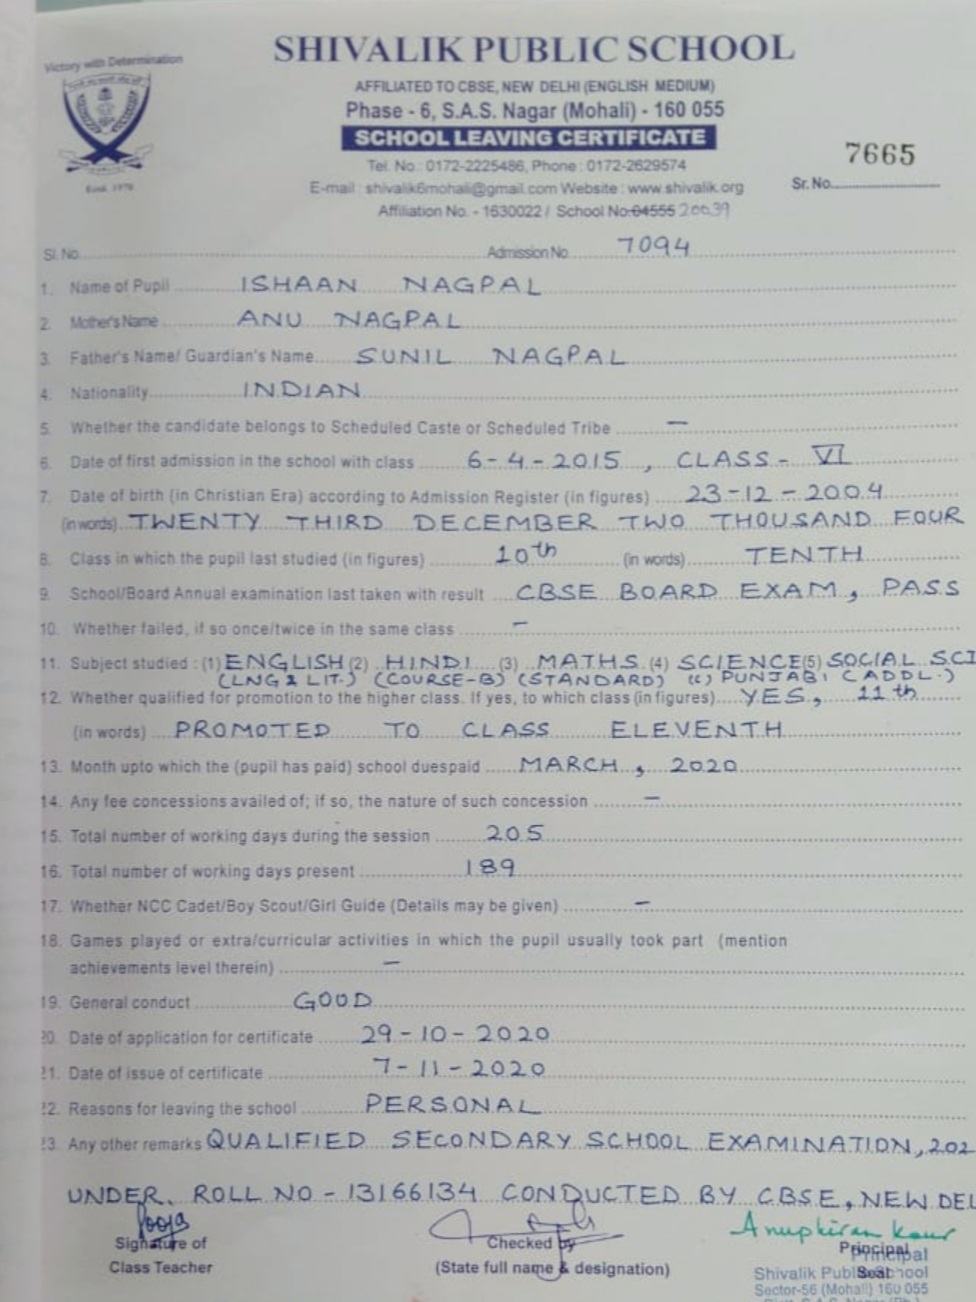 Victory with Determination
SHIVALIK PUBLIC SCHOOL
AFFILIATED TO CBSE, NEW DELHI (ENGLISH MEDIUM)
Phase - 6, S.A.S. Nagar (Mohali) - 160 055
SCHOOL LEAVING CERTIFICATE
7665
Tel. No : 0172-2225486, Phone : 0172-2629574
Sr. No.
E-mail : shivalik6mohali@gmail.com Website : www.shivalik.org
Estd. 1970
Affiliation No. - 1630022 / School No. 04555 20039
Sl. No. Admission No. 7094
1. Name of Pupil ISHAAN NAGPAL
2. Mother's Name ANU NAGPAL
3. Father's Name/ Guardian's Name SUNIL NAGPAL
4. Nationality INDIAN
5. Whether the candidate belongs to Scheduled Caste or Scheduled Tribe —
6. Date of first admission in the school with class 6-4-2015, CLASS - VI
7. Date of birth (in Christian Era) according to Admission Register (in figures) 23-12-2004
(in words) TWENTY THIRD DECEMBER TWO THOUSAND FOUR
8. Class in which the pupil last studied (in figures) 10th (in words) TENTH
9. School/Board Annual examination last taken with result CBSE BOARD EXAM, PASS
10. Whether failed, if so once/twice in the same class —
11. Subject studied : (1) ENGLISH (2) HINDI (3) MATHS (4) SCIENCE (5) SOCIAL SCI
(LNG & LIT.) (COURSE-B) (STANDARD) (6) PUNJABI (ADDL.)
12. Whether qualified for promotion to the higher class. If yes, to which class (in figures) YES, 11th
(in words) PROMOTED TO CLASS ELEVENTH
13. Month upto which the (pupil has paid) school duespaid MARCH, 2020
14. Any fee concessions availed of; if so, the nature of such concession —
15. Total number of working days during the session 205
16. Total number of working days present 189
17. Whether NCC Cadet/Boy Scout/Girl Guide (Details may be given) —
18. Games played or extra/curricular activities in which the pupil usually took part (mention
achievements level therein) —
19. General conduct GOOD
20. Date of application for certificate 29-10-2020
21. Date of issue of certificate 7-11-2020
22. Reasons for leaving the school PERSONAL
23. Any other remarks QUALIFIED SECONDARY SCHOOL EXAMINATION, 202
UNDER ROLL NO - 13166134 CONDUCTED BY CBSE, NEW DEL
Pooja
Anupkiran Kaur
Signature of Checked by Principal Principal
Class Teacher (State full name & designation) Seal
Shivalik Public School
Sector-56 (Mohali) 160 055